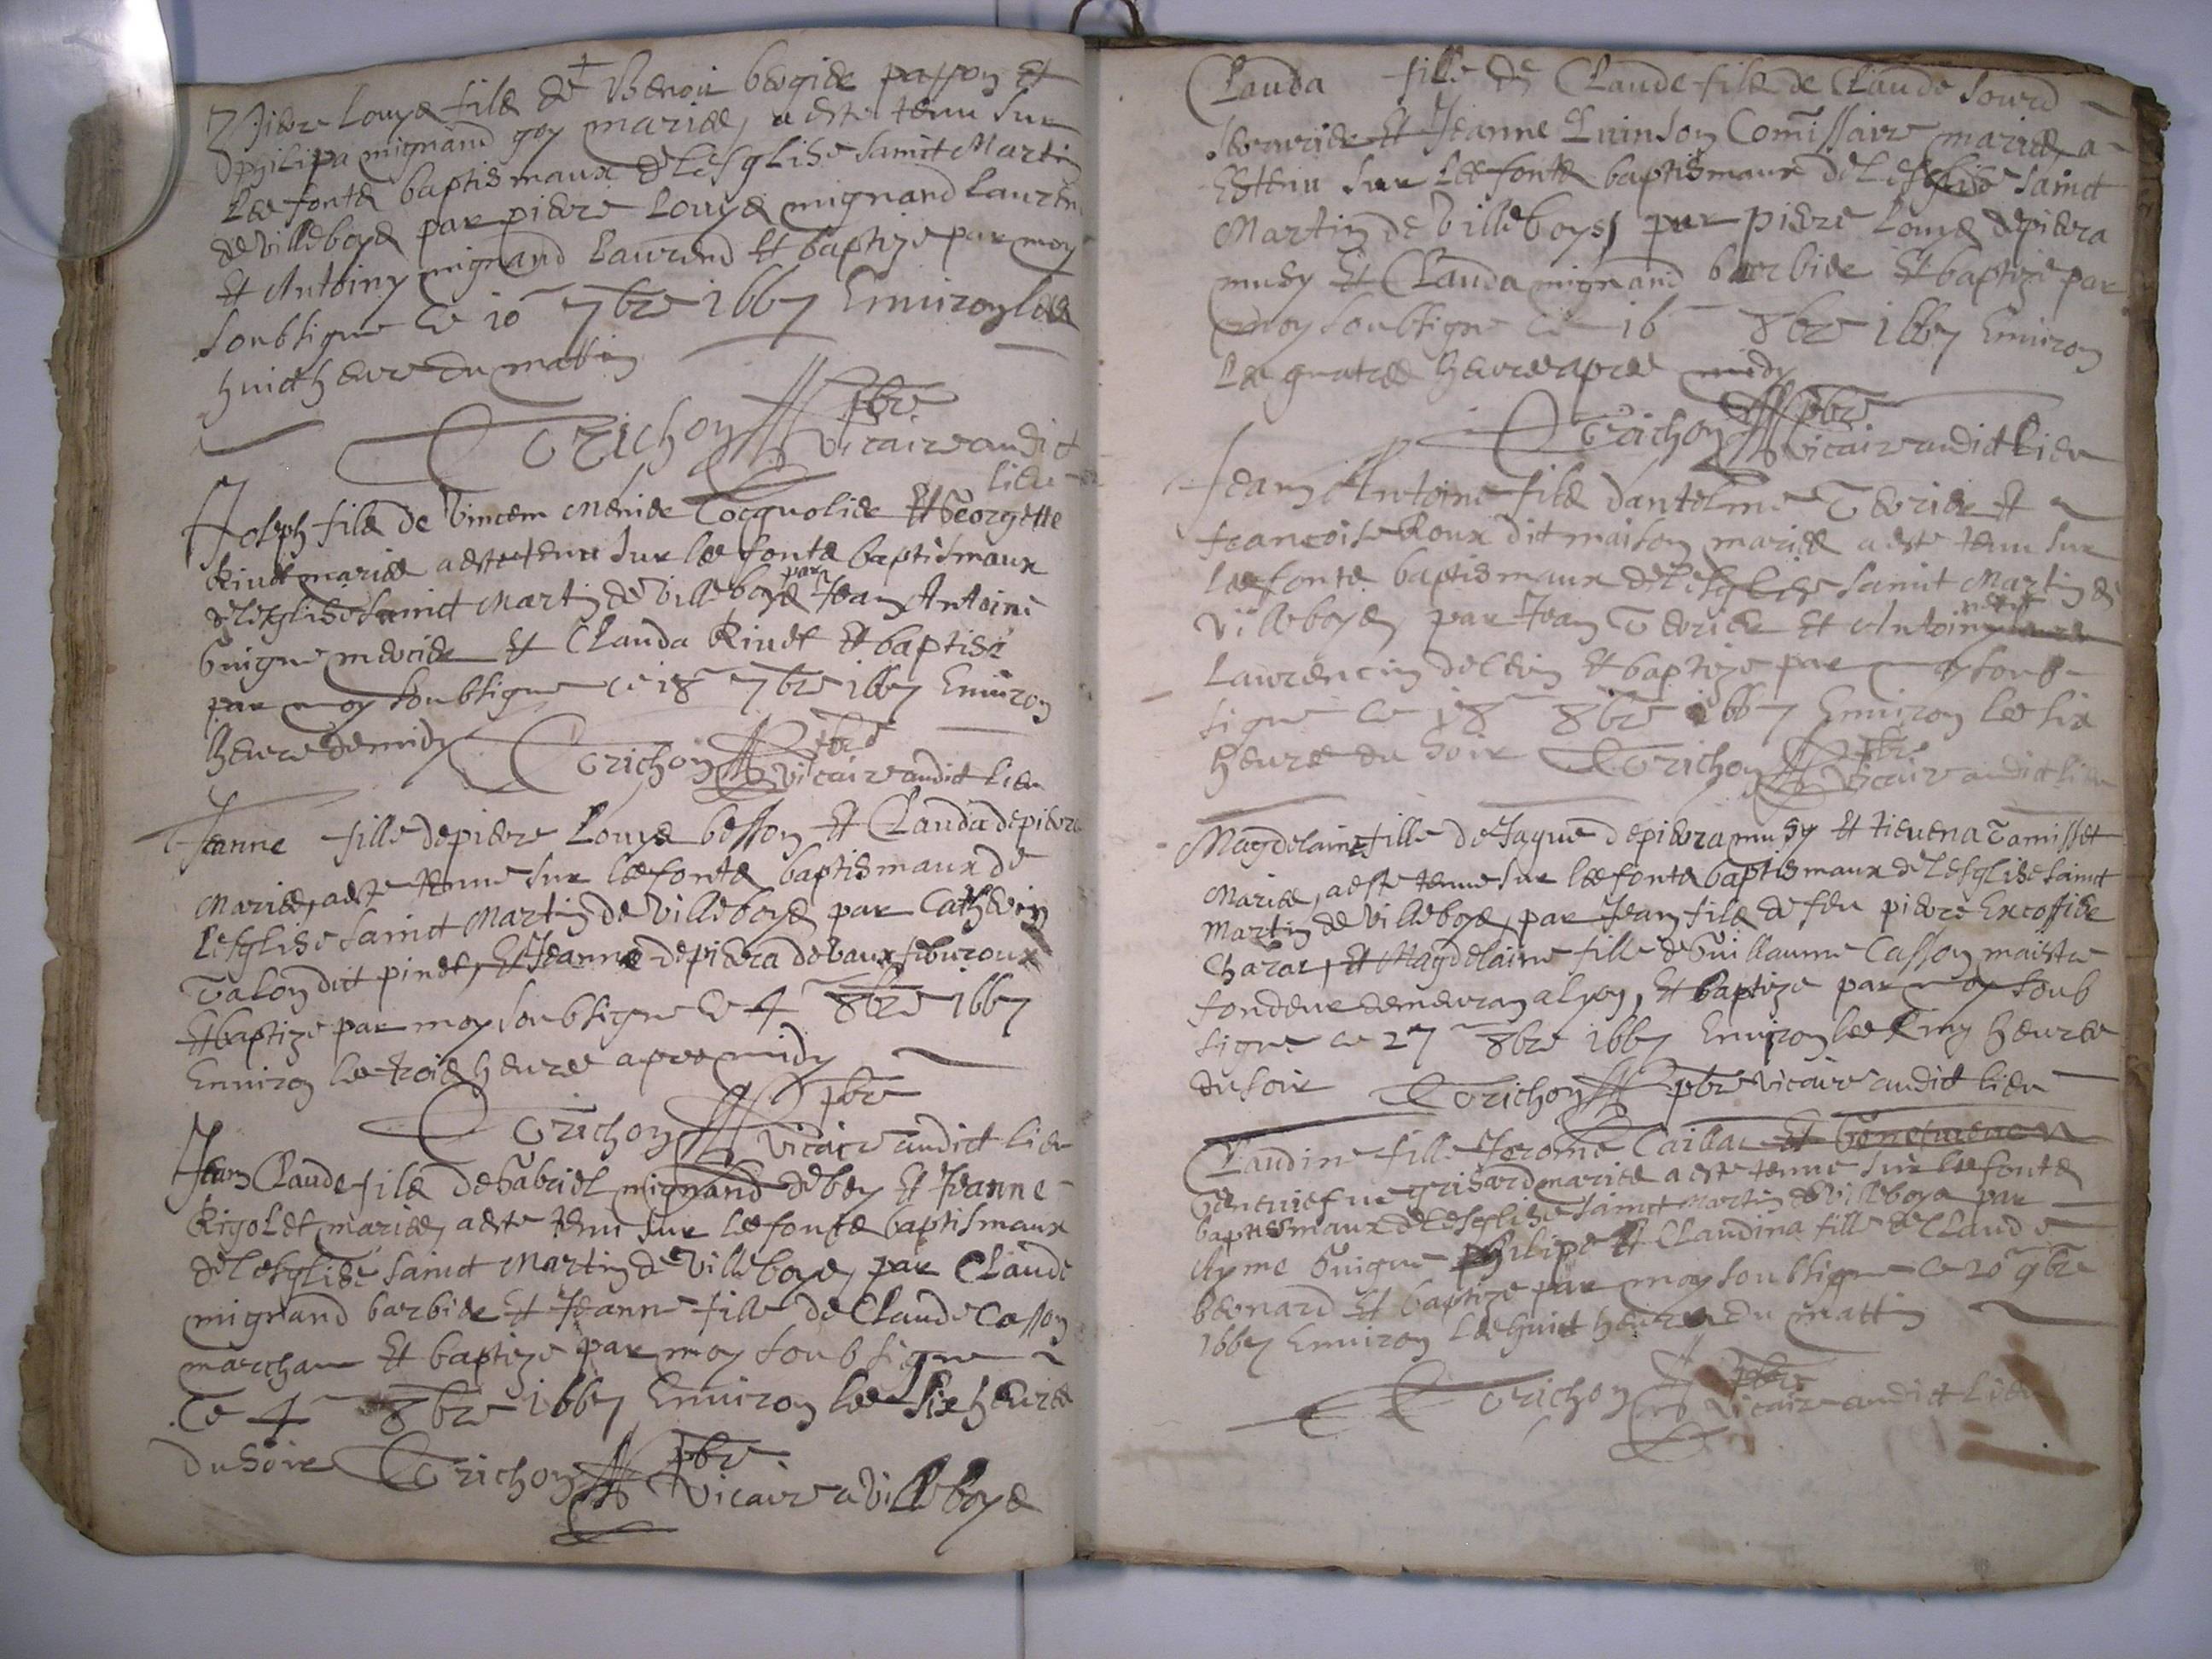 Piere Louys fils de Benoir bergier passon Et
philipa mignand goy mariés, a esté tenu sur
les fonts baptismaux de lesglise sainct Martin
de villeboys par piere Louys mignand Lauren
Et Antoiny mignand Laurend Et baptize par moy
soubsigne ce 10 7bre 1667 Environ les
huict heures du mattin
Trichon pbre
vicaire audict
lieu
Joseph fils de Vincem Menier Cocquolier Et Georgette
Rinet mariés a esté tenu sur les fonts baptismaux
de lesglise sainct Martin de Villeboys par Jean Antoine
Guigue mercier Et Clauda Rinet Et baptisé
par moy soubsigne ce 18 7bre 1667 Environ
heure de midy Trichon pbre
vicaire audict lieu
Jeanne fille de piere Louys besson Et Clauda depiera
Mariés, a esté tenue sur les fonts baptismaux de
lesglise sainct Martin de Villeboys par Catherin
Talon dit pinet, Et Jeanne depiera debaux
Et baptize par moy soubsigne ce 4 8bre 1667
Environ les trois heures apres midy
Trichon pbre
vicaire audict lieu
Jean Claude fils de Gabriel mignand debey Et Jeanne
Rigolet mariés, a esté tenu sur les fonts baptismaux
de lesglise sainct Martin de Villeboys, par Claude
mignand barbier Et Jeanne fille de Claude Casson
marchan Et baptize par moy soubsigne
Ce 4 8bre 1667 Environ les six heures
du Soir Trichon pbre
vicaire a Villeboys
Clauda fille de Claude fils de Claude Sourd
Et Jeanne Quinson Comissaire mariés, a
Esté tenu sur les fonts baptismaux de Lesglise sainct
Martin de Villeboys, par piere Louys depiera
musy Et Clauda mignand barbier Et baptize par
moy soubsigne ce 16 8bre 1667 Environ
Les quatres heures apres midy
Trichon pbre
vicaire audict Lieu
Jean Antoine fils dantelme Terrier Et
francoise Roux dit maison mariés a esté tenu sur
les fonts baptismaux de lesglise sainct Martin de
Villeboys, par Jean Terrier Et Antoiny
Laurencin Et baptize par moy soub-
signe ce 18 8bre 1667 Environ les six
heures du soir Trichon pbre
vicaire audict lieu
Magdelaine fille de Jaque depiera musy Et tievena Tamisset
Mariés, a esté tenue sur les fonts baptismaux de Lesglise sainct
Martin de Villeboys, par Jean fils de feu piere Excoffier
Charar, Et Magdelaine fille de Guillaume Casson maistre
fondeur demeuran a lyon, Et baptize par moy soub
signe ce 27 8bre 1667 Environ les Cinq heures
du soir Trichon pbre vicaire audict lieu
Claudine fille Jerome Caillat
grisard mariés a esté tenue sur les fonts
baptissmaux de lesglise sainct Martin de Villeboys par
Ayme Guigue philipe Et Claudina fille de Claude
bernard Et baptize par moy soubsigne ce 20 9bre
1667 Environ les huict heures du mattin
Trichon pbre
vicaire audict Lieu